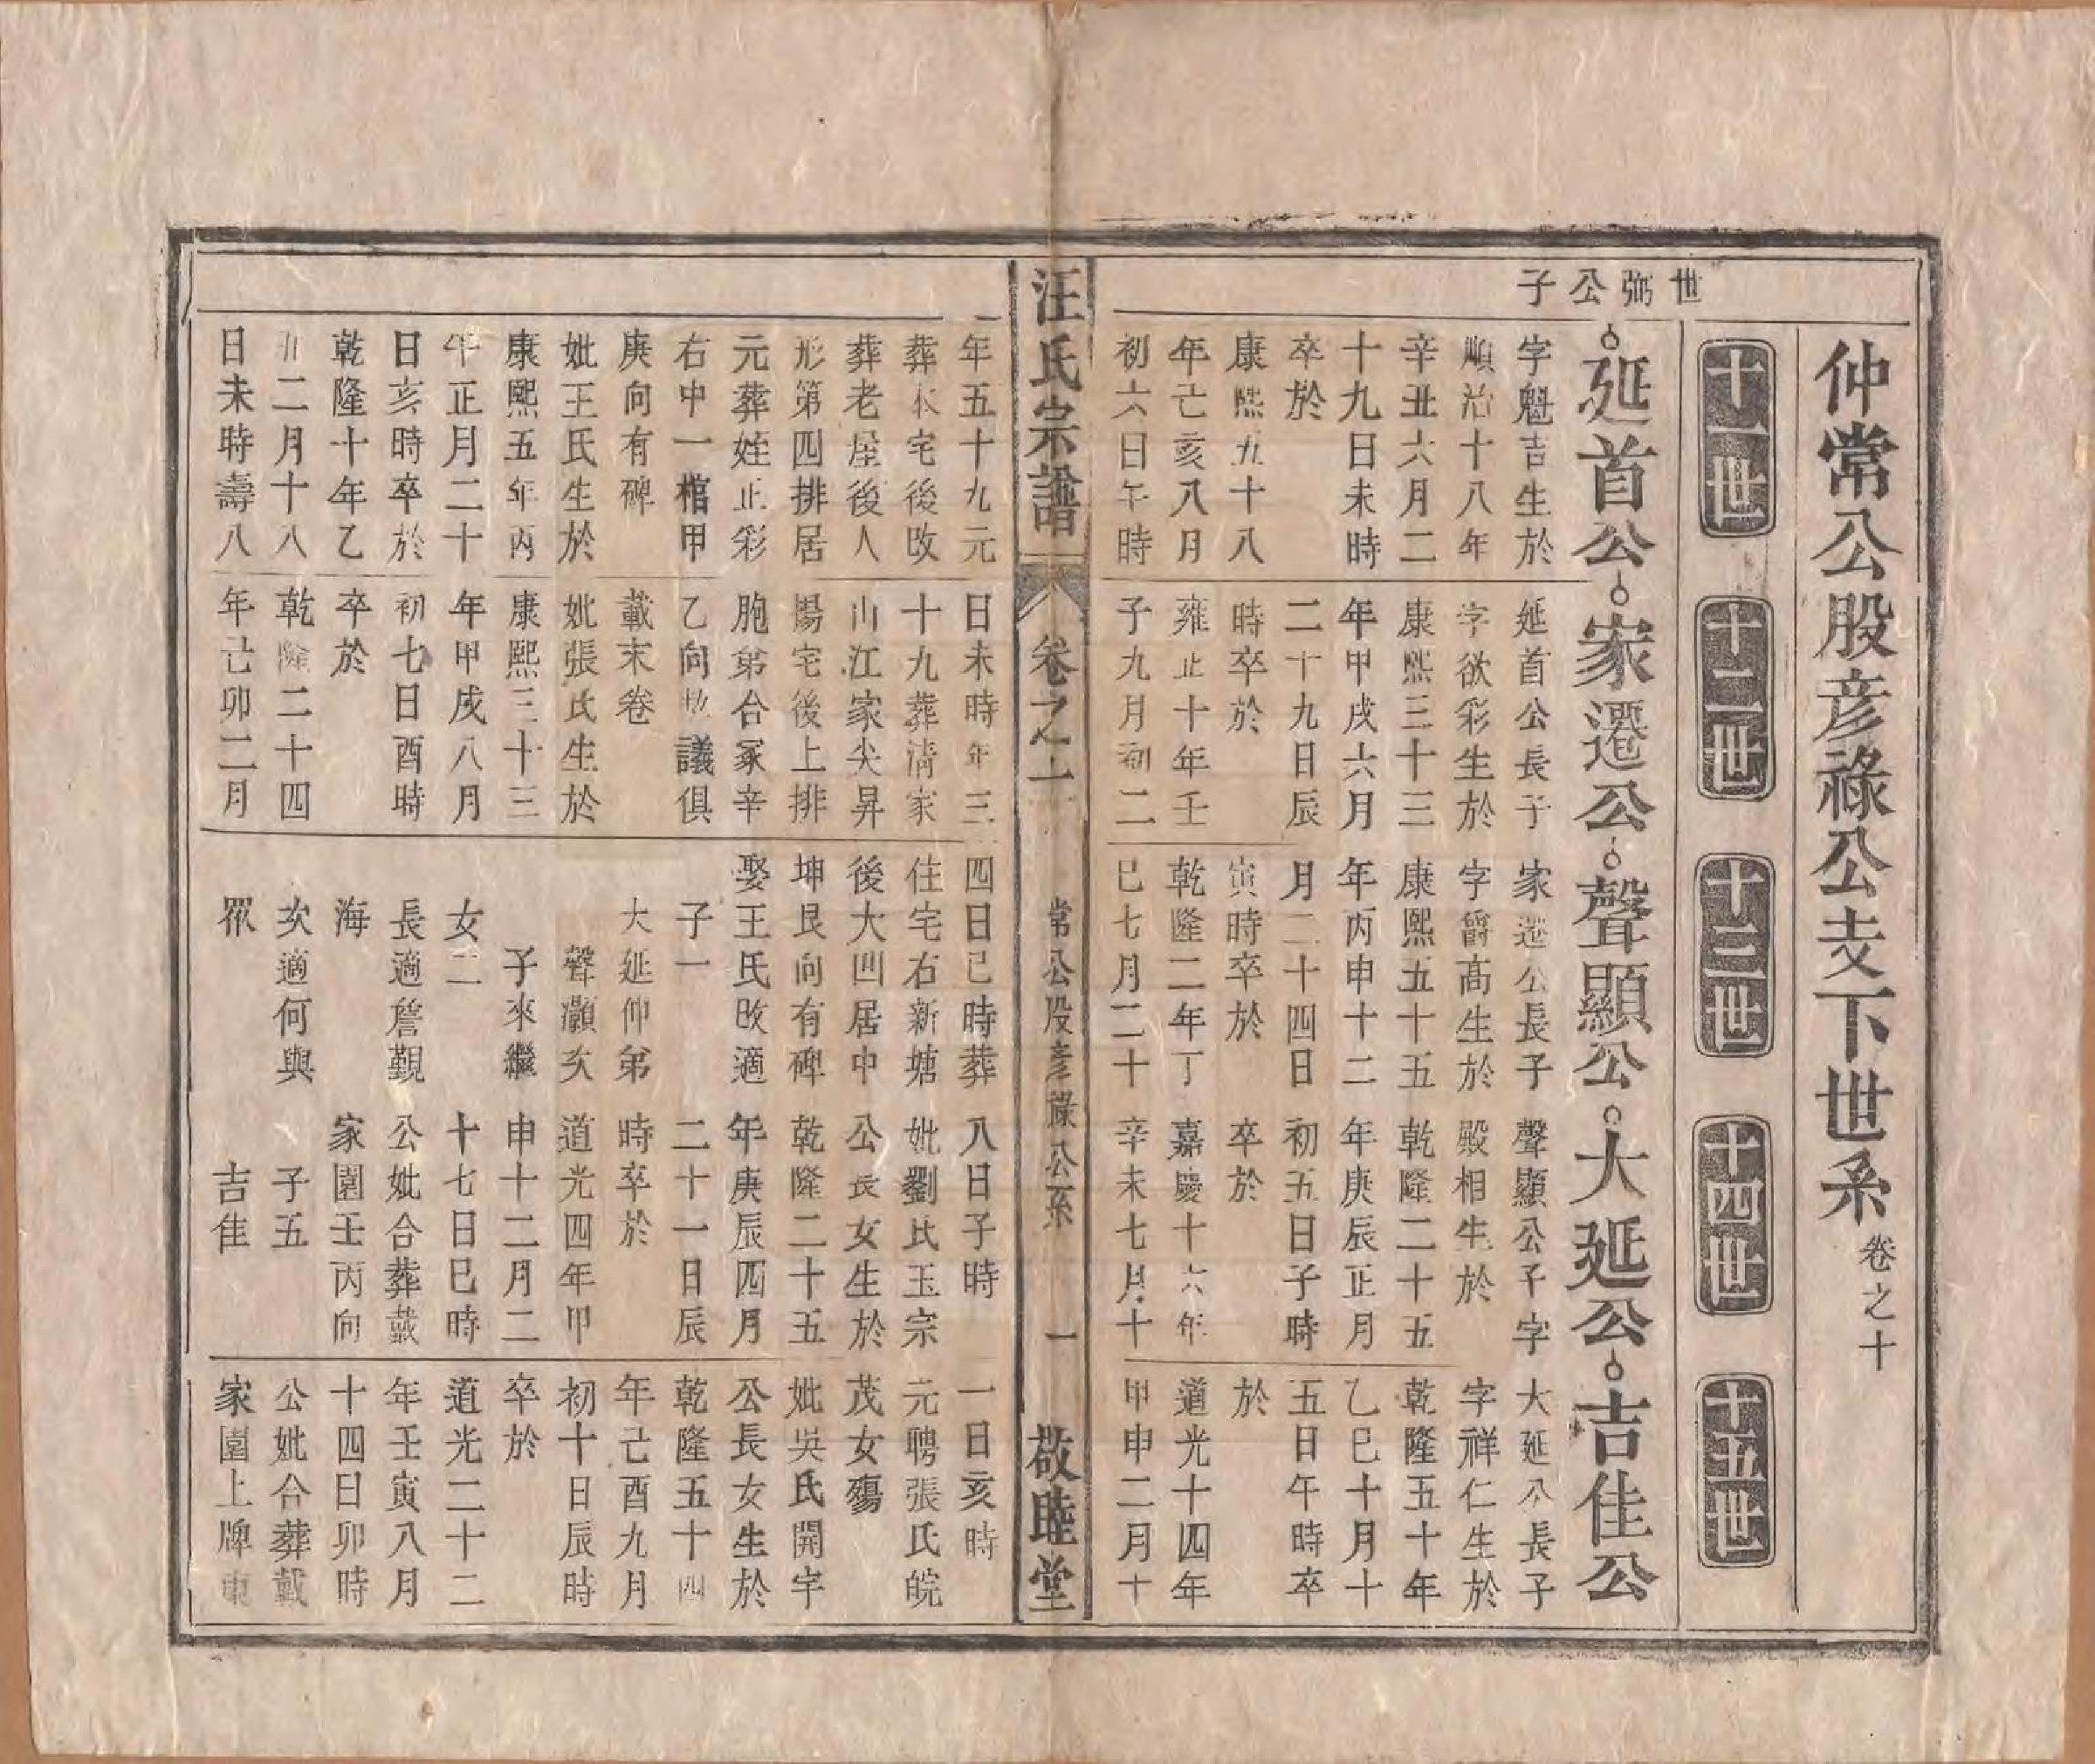 仲常公股彦祿公支下世系 卷之十
十一世
十二世
十三世
十四世
十五世
世弼公子
延首公
字魁吉生於
順治十八年
辛丑六月二
十九日未時
卒於
康熙五十八
年己亥八月
初六日午時
年五十九元
葬本宅後改
葬老屋後人
形第四排居
元葬姪正彩
右中一棺甲
庚向有碑
妣王氏生於
康熙五年丙
午正月二十
日亥時卒於
乾隆十年乙
丑二月十八
日未時壽八
家遷公
延首公長子
字欲彩生於
康熙三十三
年甲戌六月
二十九日辰
時卒於
雍正十年壬
子九月初二
日未時年三
十九葬清家
山江家尖昇
陽宅後上排
胞弟合冢辛
乙向 議俱
載末卷
妣張氏生於
康熙三十三
年甲戌八月
初七日酉時
卒於
乾隆二十四
年己卯二月
聲顯公
家遷公長子
字爵髙生於
康熙五十五
年丙申十二
月二十四日
寅時卒於
乾隆二年丁
巳七月二十
四日巳時葬
住宅右新塘
後大凹居中
坤艮向有碑
娶王氏改適
子一
大延仲弟
聲灝次
子來繼
女二
長適詹觐
海
次適何與
眾
大延公
聲顯公子字
殿相生於
乾隆二十五
年庚辰正月
初五日子時
卒於
嘉慶十六年
辛未七月十
八日子時
妣劉氏玉宗
公長女生於
乾隆二十五
年庚辰四月
二十一日辰
時卒於
道光四年甲
申十二月二
十七日巳時
公妣合葬載
家園壬丙向
子五
吉佳
吉佳公
大延公長子
字祥仁生於
乾隆五十年
乙巳十月十
五日午時卒
於
道光十四年
甲申二月十
一日亥時
元聘張氏皖
茂女殤
妣吳氏開宇
公長女生於
乾隆五十四
年己酉九月
初十日辰時
卒於
道光二十二
年壬寅八月
十四日卯時
公妣合葬載
家園上牌東
汪氏宗譜
卷之十
常公股彦祿公系
一
敬睦堂